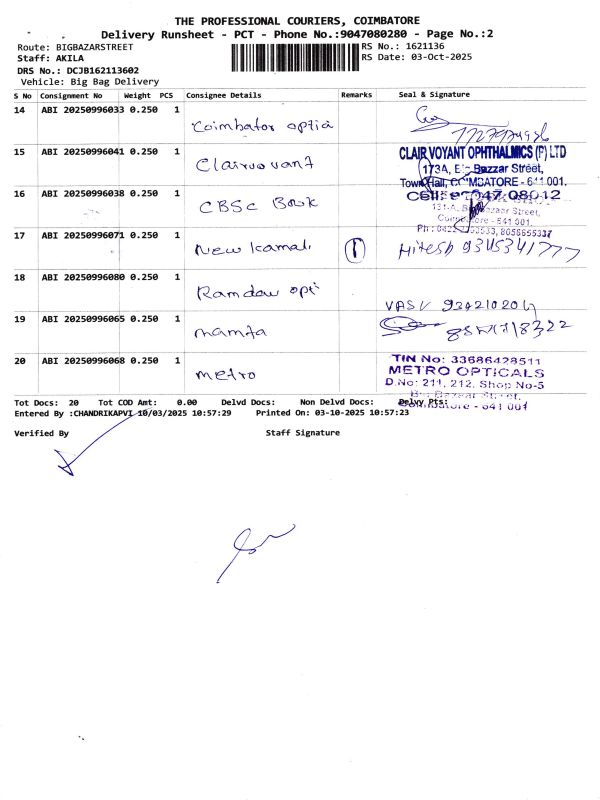 THE PROFESSIONAL COURIERS, COIMBATORE
Delivery Runsheet - PCT - Phone No.:9047080280 - Page No.:2
Route: BIGBAZARSTREET
RS No.: 1621136
Staff: AKILA
RS Date: 03-Oct-2025
DRS No.: DCJB162113602
Vehicle: Big Bag Delivery
S No Consignment No Weight PCS Consignee Details Remarks Seal & Signature
14 ABI 20250996033 0.250 1
Coimbator optia
15 ABI 20250996041 0.250 1
Clairvovant
CLAIR VOYANT OPHTHALMICS (P) LTD
173A, Bazzar Street,
Town Hall, COIMBATORE - 641 001.
16 ABI 20250996038 0.250 1
CBSC Book
Street,
17 ABI 20250996071 0.250 1
New Kamal
1
Hitesh 9345341777
18 ABI 20250996080 0.250 1
Ramdav opti
VASU
19 ABI 20250996065 0.250 1
mamta
20 ABI 20250996068 0.250 1
metro
TIN No: 33686428511
METRO OPTICALS
D.No: 211, 212, Shop No-5
Big Bazaar Street,
Coimbatore - 641 001
Tot Docs: 20 Tot COD Amt: 0.00 Delvd Docs: Non Delvd Docs: Delvy Pts:
Entered By :CHANDRIKAPVI 10/03/2025 10:57:29 Printed On: 03-10-2025 10:57:23
Verified By Staff Signature